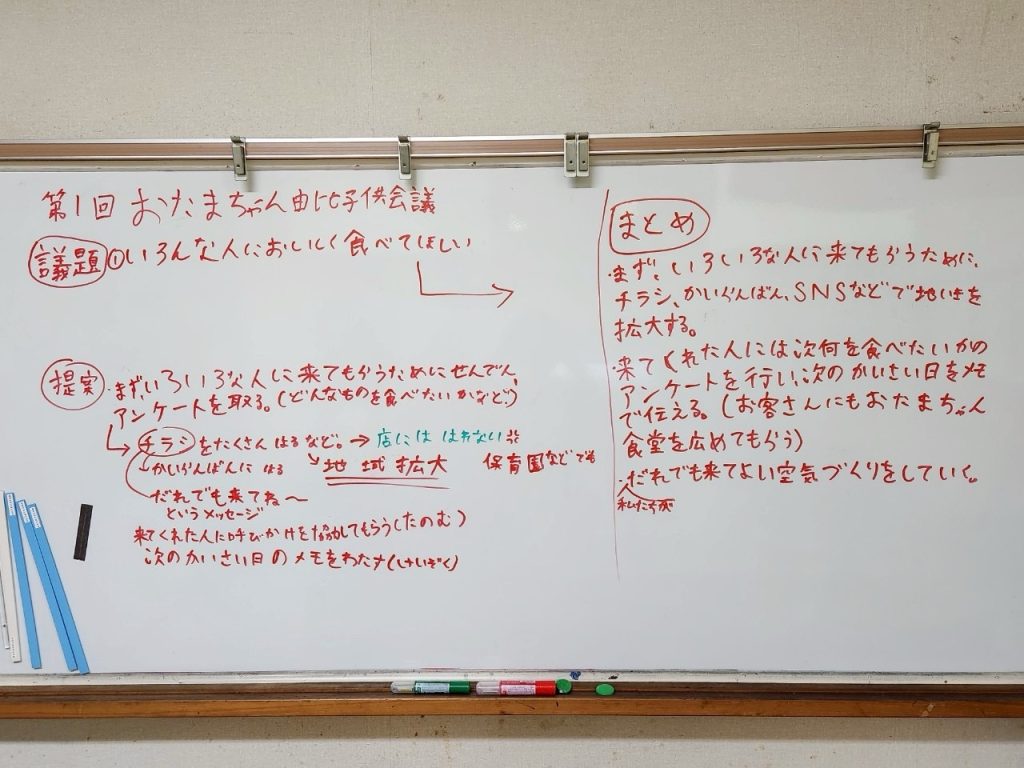 第1回 おたまちゃん由比子供会議
議題 ①いろんな人においしく食べてほしい
提案 ・まず、いろいろな人に来てもらうためにせんでん、
アンケートを取る。(どんなものを食べたいかなど)
チラシをたくさんはるなど。→店にははれない
かいらんばんにはる
地域拡大
保育園などでも
だれでも来てね〜
というメッセージ
来てくれた人に呼びかけを協力してもらう(たのむ)
次のかいさい日のメモをわたす(けいぞく)
まとめ
・まず、いろいろな人に来てもらうために、
チラシ、かいらんばん、SNSなどで地いきを
拡大する。
・来てくれた人には次何を食べたいかの
アンケートを行い、次のかいさい日をメモ
で伝える。(お客さんにもおたまちゃん
食堂を広めてもらう)
・だれでも来てよい空気づくりをしていく。
私たちが